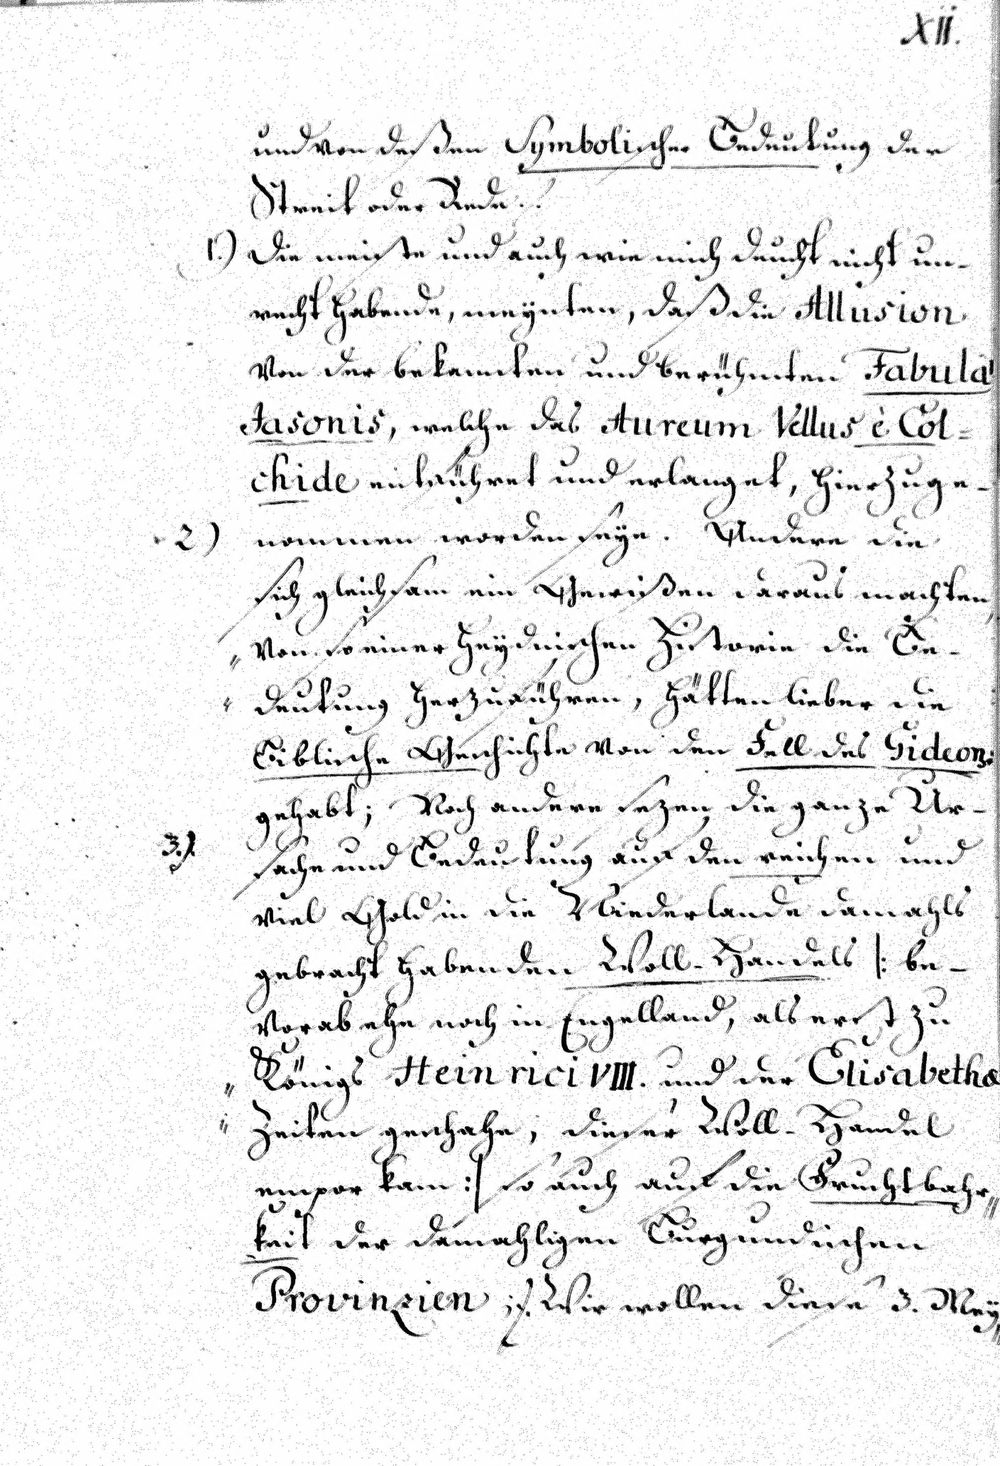 XII.
und von deßen Symbolischer Bedeutung der
Streit oder Rede.
1.) Die meiste und auch wie mich deucht nicht un-
recht habende, meynten, daß die Allusion
von der bekannten und berühmten Fabula
Jasonis, welche das Aureum Vellus è Col=
chide entführet und erlanget, hierzu ge-
2.) nommen worden seye. Andere die
sich gleichsam ein Gewißen daraus machten
" von so einer Heydnischen Historie die Be-
" deutung herzuführen, hätten lieber die
Biblische Geschichte von den Fell des Gideons
gehabt; Noch andere sezen die ganze Ur-
3.) sache und Bedeutung auf den reichen und
viel Gold in die Niederlande damahls
gebracht habenden Woll-Handels |: be-
vorab ehe noch in Engelland, als erst zu
" Königs Heinrici VIII. und der Elisabethæ
" Zeiten geschahe, dieser Woll-Handel
empor kam :| so auch auf die Fruchtbahr"
keit der damahligen Burgundischen
Provinzien ;/. Wir wollen diese 3. Mey"